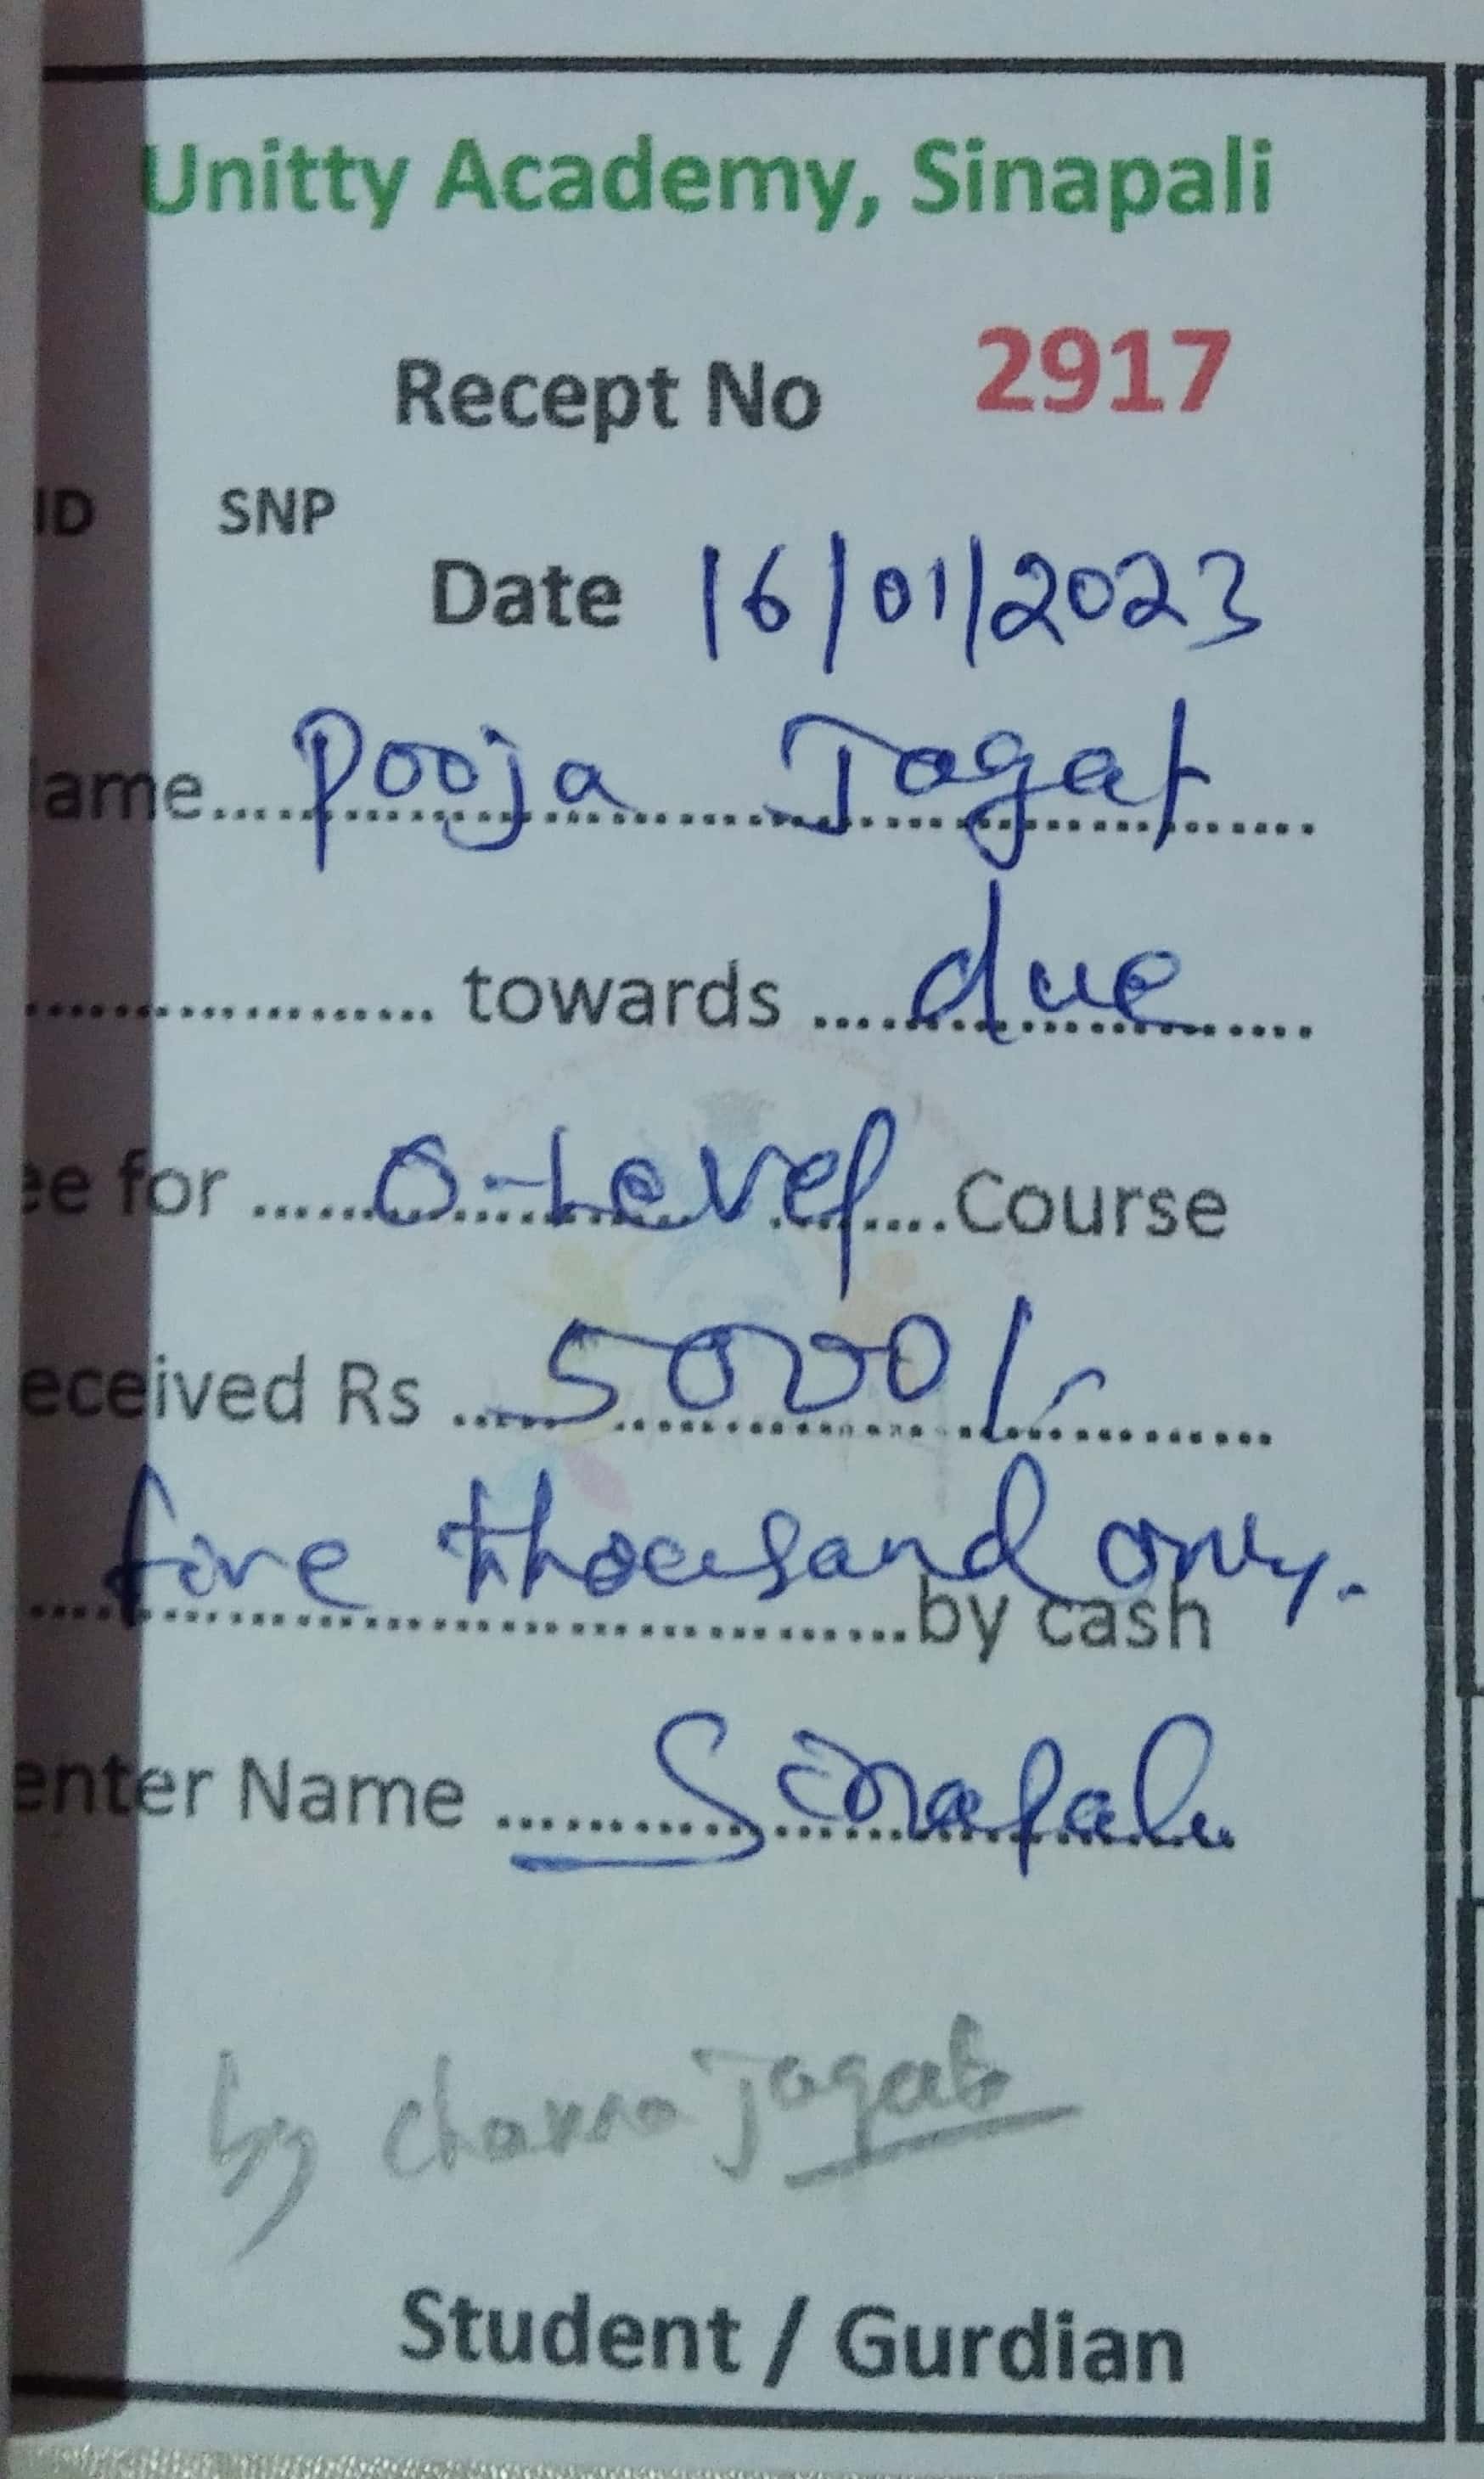 Unitty Academy, Sinapali
Recept No 2917
ID SNP
Date 16/01/2023
ame.... Pooja Jagat
.................... towards .... due
ee for ...... O-Level ....Course
eceived Rs ...... 5000/-
five thousand only.
....................by cash
enter Name .......... Sinapali
by Jagat
Student / Gurdian